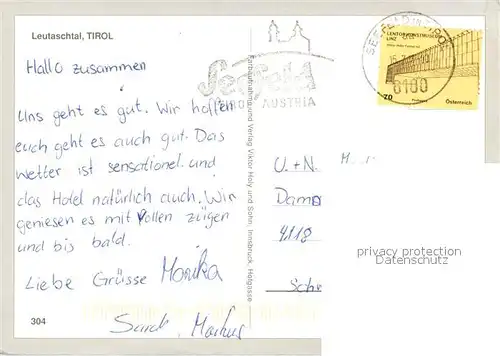 Leutaschtal, TIROL
Hallo zusammen
Uns geht es gut. Wir hoffen
euch geht es auch gut. Das
Wetter ist sensationel und
das Hotel natürlich auch. Wir
geniesen es mit vollen zügen
und bis bald.
Liebe Grüsse Monika
Sarah, Markus
304
Seefeld
TIROL AUSTRIA
Verlag Viktor Holy und Sohn, Innsbruck, Hofgasse
LENTOS KUNSTMUSEUM
LINZ
SEEFELD IN TIROL
6100
70
Österreich
U. + N.
4118
privacy protection
Datenschutz